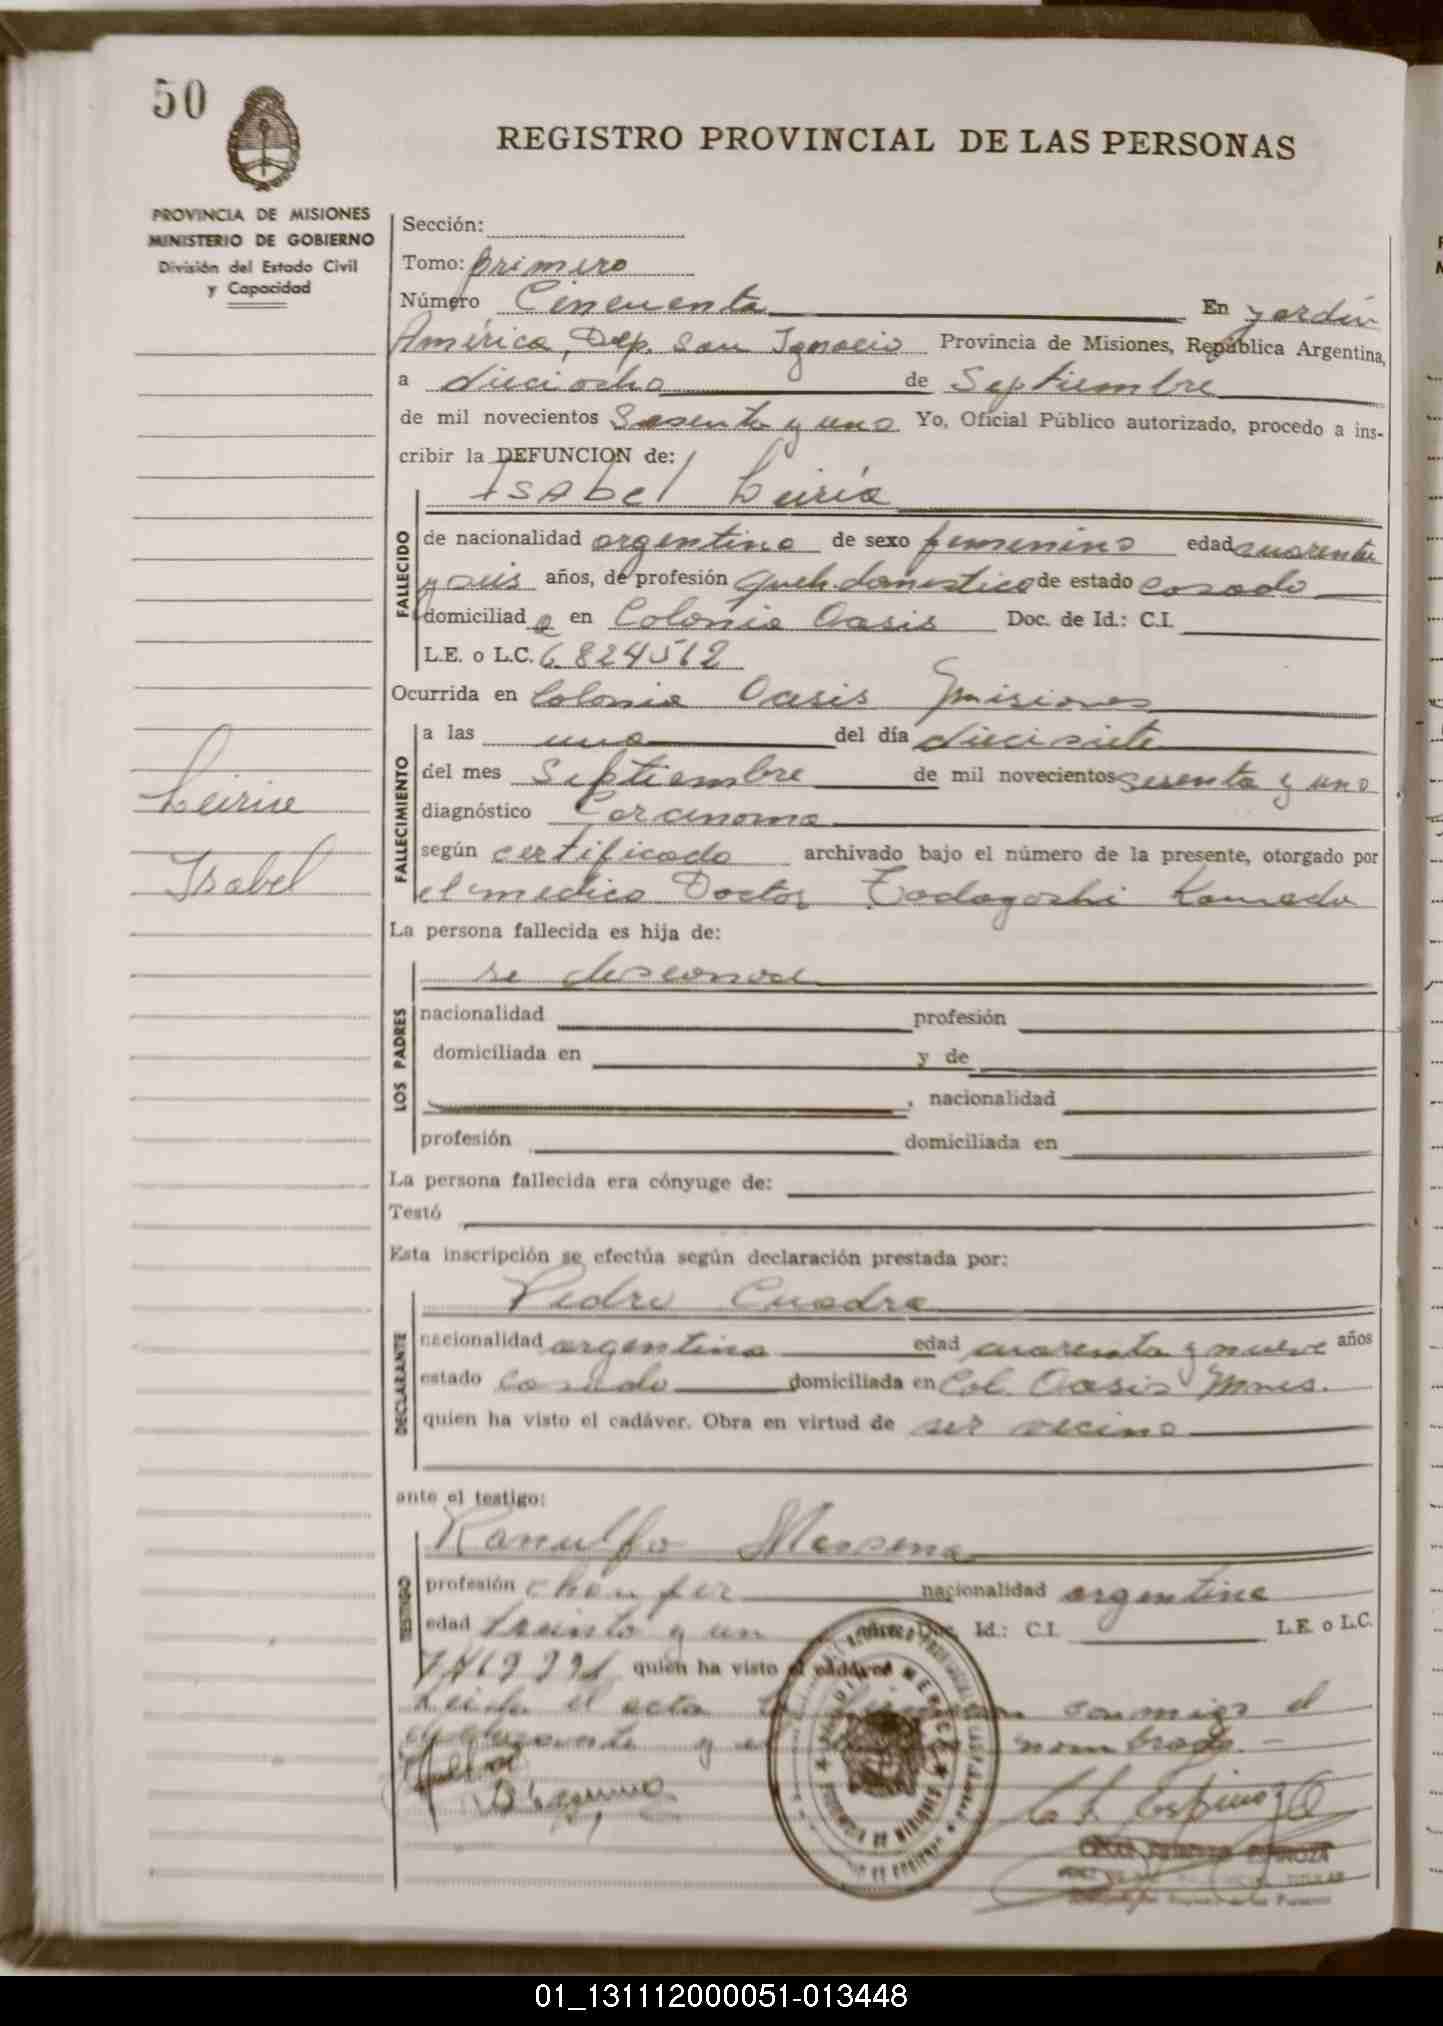 50
REGISTRO PROVINCIAL DE LAS PERSONAS
PROVINCIA DE MISIONES
MINISTERIO DE GOBIERNO
División del Estado Civil
y Capacidad
Sección:
Tomo: primero
Número Cincuenta En Jardín
América, Dep. San Ignacio Provincia de Misiones, República Argentina,
a dieciocho de Septiembre
de mil novecientos Sesenta y uno Yo, Oficial Público autorizado, procedo a ins-
cribir la DEFUNCION de:
Isabel Leiria
FALLECIDO
de nacionalidad argentina de sexo femenino edad cuarenta
y seis años, de profesión queh. domestico de estado casado
domiciliad a en Colonia Oasis Doc. de Id.: C.I.
L.E. o L.C. 6.824512
Ocurrida en Colonia Oasis Misiones
FALLECIMIENTO
a las una del día diecisiete
del mes Septiembre de mil novecientos sesenta y uno
diagnóstico Carcinoma
según certificado archivado bajo el número de la presente, otorgado por
el medico Doctor Kameda
Leiria
Isabel
La persona fallecida es hija de:
se desconoce
LOS PADRES
nacionalidad profesión
domiciliada en y de
, nacionalidad
profesión domiciliada en
La persona fallecida era cónyuge de:
Testó
Esta inscripción se efectúa según declaración prestada por:
Pedro Cuadra
DECLARANTE
nacionalidad argentina edad cuarenta y nueve años
estado casado domiciliada en Col. Oasis Mnes.
quien ha visto el cadáver. Obra en virtud de ser vecino
ante el testigo:
Ranulfo Messena
TESTIGO
profesión choufer nacionalidad argentina
edad treinta y un Doc. Id.: C.I. L.E. o L.C.
quien ha visto el cadáver
Leida el acta la conmigo el
declarante y el nombrado.-
PROVINCIA DE MISIONES
Espinoza
ESPINOZA
TITULAR
01_131112000051-013448